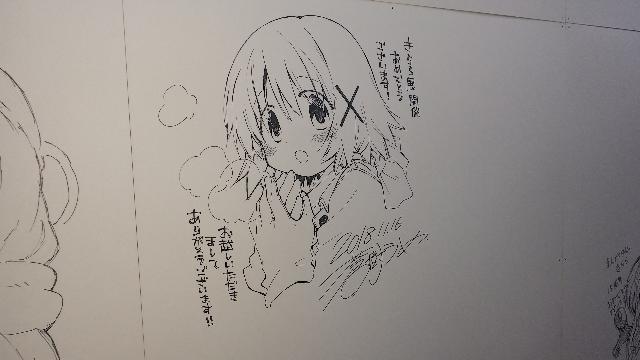 きらら展開催
おめでとう
ございます!
お越しいただき
まして
ありがとうございます!!
2018.11.16